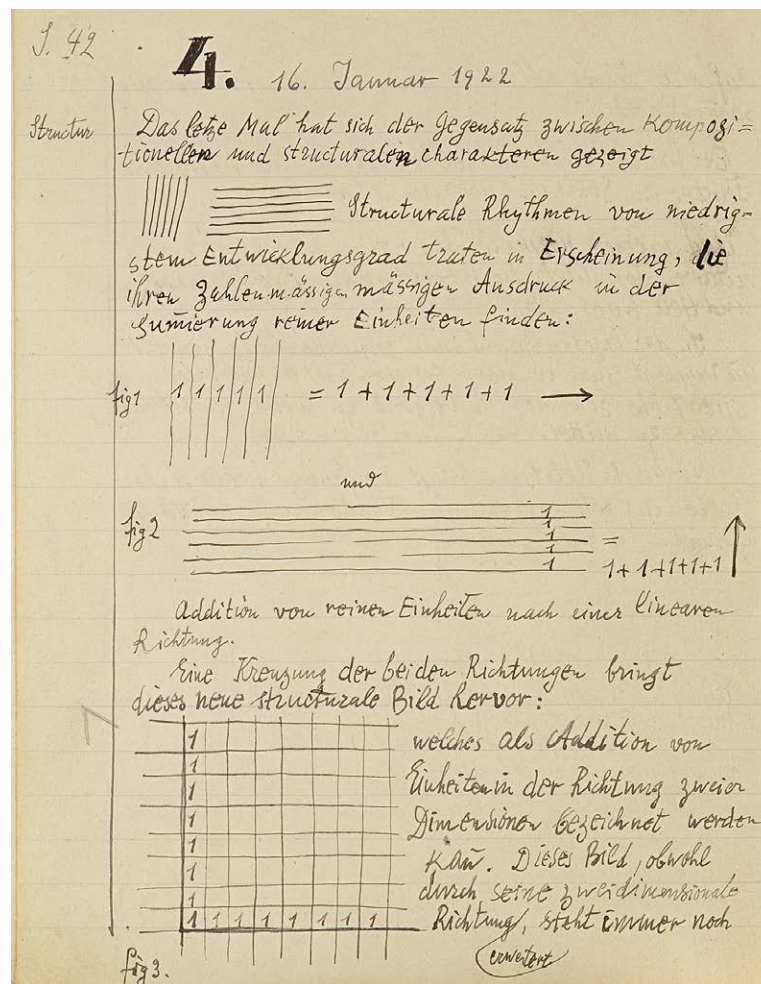 S. 42
4. 16. Januar 1922
Structur
Das letze Mal hat sich der Gegensatz zwischen Komposi=
tionellen und structuralen charakteren gezeigt
Structurale Rhythmen von niedrig-
stem Entwicklungsgrad traten in Erscheinung, die
ihren Zahlenmässigen mässigen Ausdruck in der
Sum̄ierung reiner Einheiten finden:
fig1 1 1 1 1 1 = 1+1+1+1+1 →
und
fig2
1
1
1
1
1
= 1+1+1+1+1 ↑
Addition von reinen Einheiten nach einer linearen
Richtung.
Eine Kreuzung der beiden Richtungen bringt
dieses neue structurale Bild hervor:
1
1
1
1
1
1
1
1 1 1 1 1 1 1 1
welches als Addition von
Einheiten in der Richtung zweier
Dimensionen bezeichnet werden
kan̄. Dieses Bild, obwohl
durch seine zweidimensionale
Richtung, steht immer noch
erweitert
fig3.